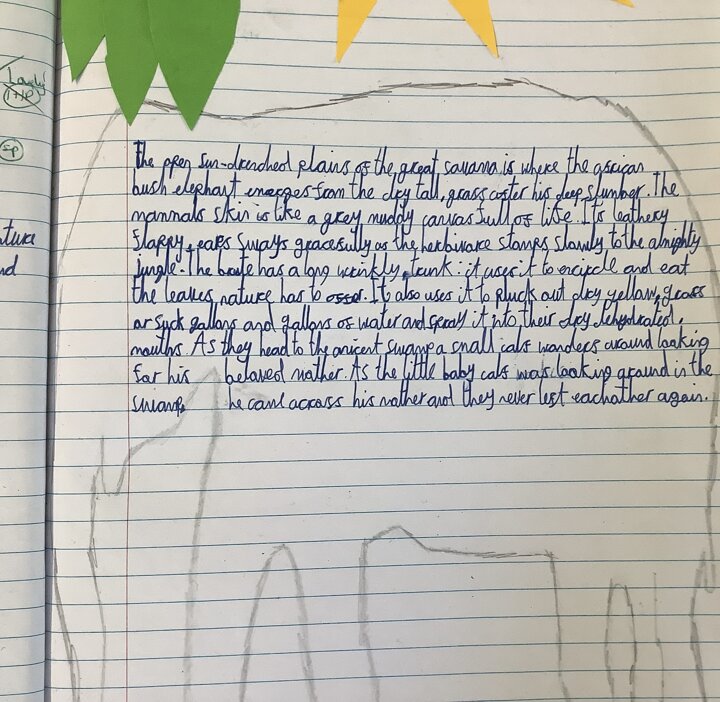 Lovely
sp
ture
nd
The open sun-drenched plains of the great savanna is where the african
bush elephant emerges from the dry tall, grass after his deep slumber. The
mammals skin is like a grey muddy canvas full of life. Its leathery
flappy, ears sways gracefully as the herbivore stomps slowly to the almighty
jungle. The brute has a long wrinkly, trunk: it uses it to encircle and eat
the leaves, nature has to offer. It also uses it to pluck out dry yellow, grass
or suck gallons and gallons of water and spray it into their dry, dehydrated,
mouths. As they head to the anicent swamp a small calf wanders around looking
for his beloved mother. As the little baby calf was looking around in the
swamp, he came across his mother and they never left eachother again.